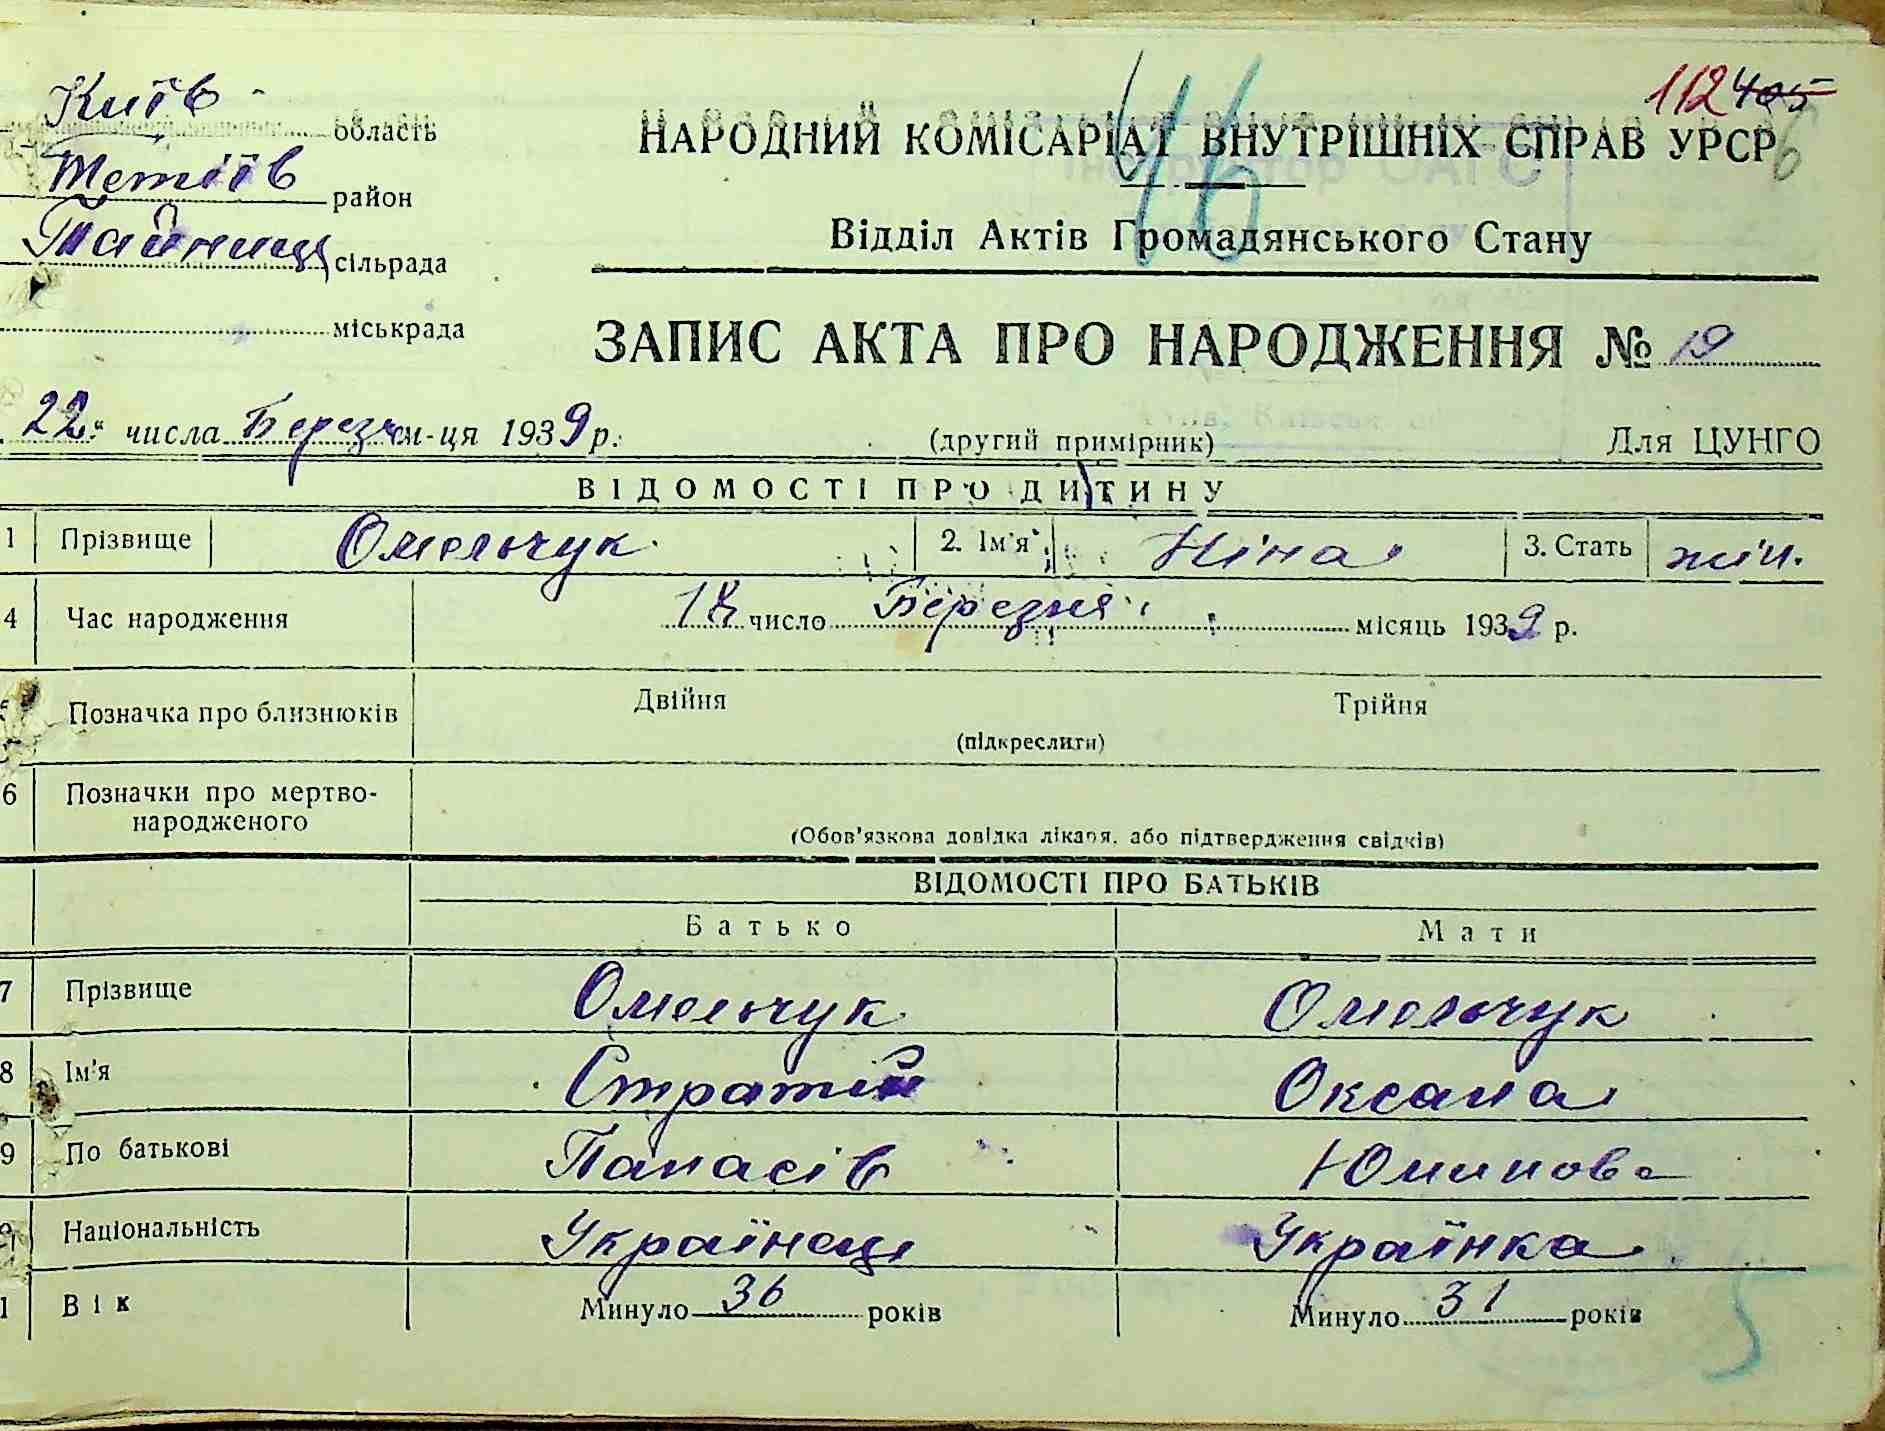 Київ область
Тетіїв район
Тайниц сільрада
міськрада
112 405
НАРОДНИЙ КОМІСАРІАТ ВНУТРІШНІХ СПРАВ УРСР
Відділ Актів Громадянського Стану
ЗАПИС АКТА ПРО НАРОДЖЕННЯ № 19
22 числа Березн м-ця 1939 р.
(другий примірник)
Для ЦУНГО
ВІДОМОСТІ ПРО ДИТИНУ
1 Прізвище Омельчук 2. Ім'я Ніна 3. Стать жін.
4 Час народження 18 число Березня місяць 1939 р.
5 Позначка про близнюків Двійня Трійня
(підкреслити)
6 Позначки про мертво-
народженого
(Обов'язкова довідка лікаря, або підтвердження свідків)
ВІДОМОСТІ ПРО БАТЬКІВ
Батько Мати
7 Прізвище Омельчук Омельчук
8 Ім'я Стратій Оксана
9 По батькові Панасів
Національність Українець Українка
Вік Минуло 36 років Минуло 31 років
5